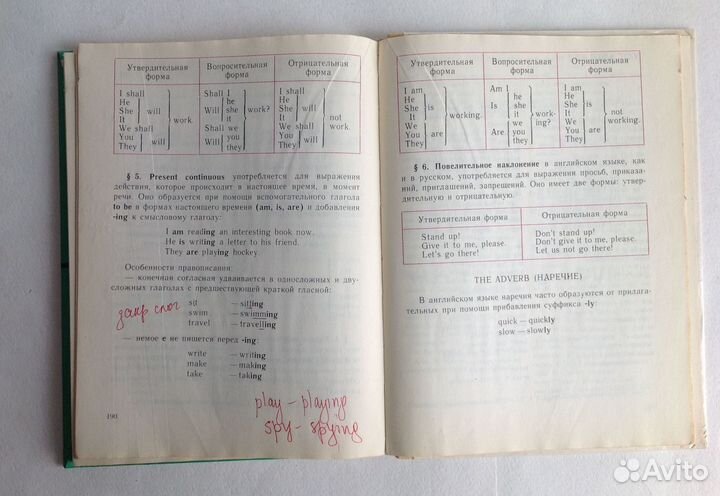 Утвердительная форма
Вопросительная форма
Отрицательная форма
I shall
He
She will
It
We shall
You
They will
work.
Shall I
he
Will she
it
Shall we
Will you
they
work?
I shall
He
She will
It
We shall
You
They will
not work.
§ 5. Present continuous употребляется для выражения
действия, которое происходит в настоящее время, в момент
речи. Оно образуется при помощи вспомогательного глагола
to be в формах настоящего времени (am, is, are) и добавления
-ing к смысловому глаголу:
I am reading an interesting book now.
He is writing a letter to his friend.
They are playing hockey.
Особенности правописания:
— конечная согласная удваивается в односложных и дву-
сложных глаголах с предшествующей краткой гласной:
закр слог
sit — sitting
swim — swimming
travel — travelling
— немое е не пишется перед -ing:
write — writing
make — making
take — taking
play – playing
spy – spying
190
Утвердительная форма
Вопросительная форма
Отрицательная форма
I am
He
She is
It
We
You are
They
working.
Am I
he
Is she
it
we
Are you
they
work-
ing?
I am
He
She is
It
We
You are
They
not
working.
§ 6. Повелительное наклонение в английском языке, как
и в русском, употребляется для выражения просьб, приказа-
ний, приглашений, запрещений. Оно имеет две формы: утвер-
дительную и отрицательную.
Утвердительная форма
Отрицательная форма
Stand up!
Give it to me, please.
Let's go there!
Don't stand up!
Don't give it to me, please.
Let us not go there!
THE ADVERB (НАРЕЧИЕ)
В английском языке наречия часто образуются от прилага-
тельных при помощи прибавления суффикса -ly:
quick — quickly
slow — slowly
Avito